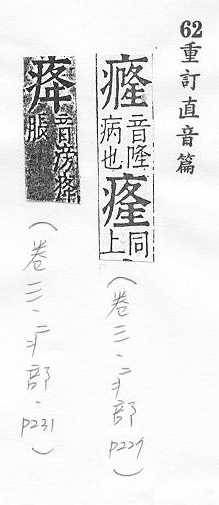 62重訂直音篇
癃音隆病也同上
(卷三、疒部 p229)
音滂脹
(卷三、疒部、p231)